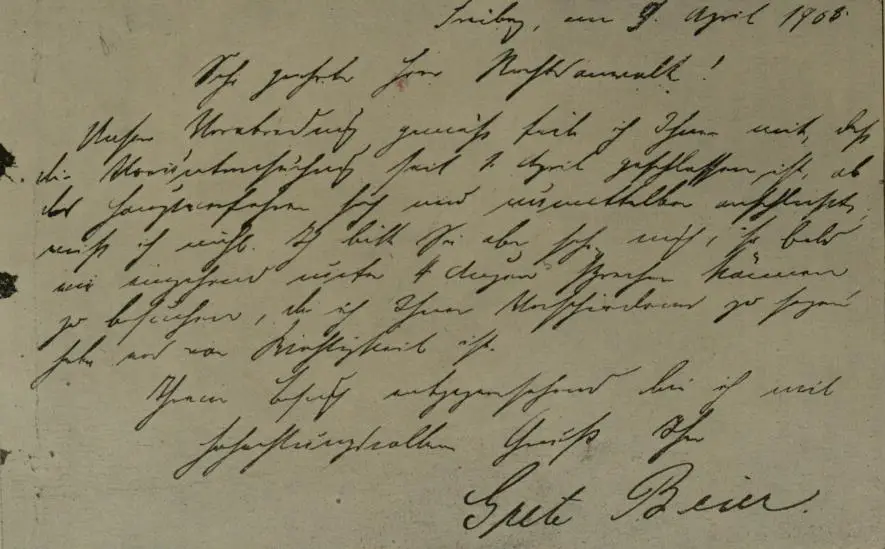 Freiberg, am 9. April 1908.
Sehr geehrter Herr Rechtsanwalt!
Unserer Verabredung gemäß teile ich Ihnen mit, daß
die Voruntersuchung seit 1. April geschlossen ist, ob
das Hauptverfahren sich nun unmittelbar anschließt,
weiß ich nicht. Ich bitte Sie aber sehr, mich, so bald
wie eingehend unter 4 Augen sprechen können
zu besuchen, da ich Ihnen Verschiedenes zu sagen
habe was von Wichtigkeit ist.
Ihrem Besuch entgegensehend bin ich mit
hochachtungsvollem Gruß Ihre
Grete Beier.